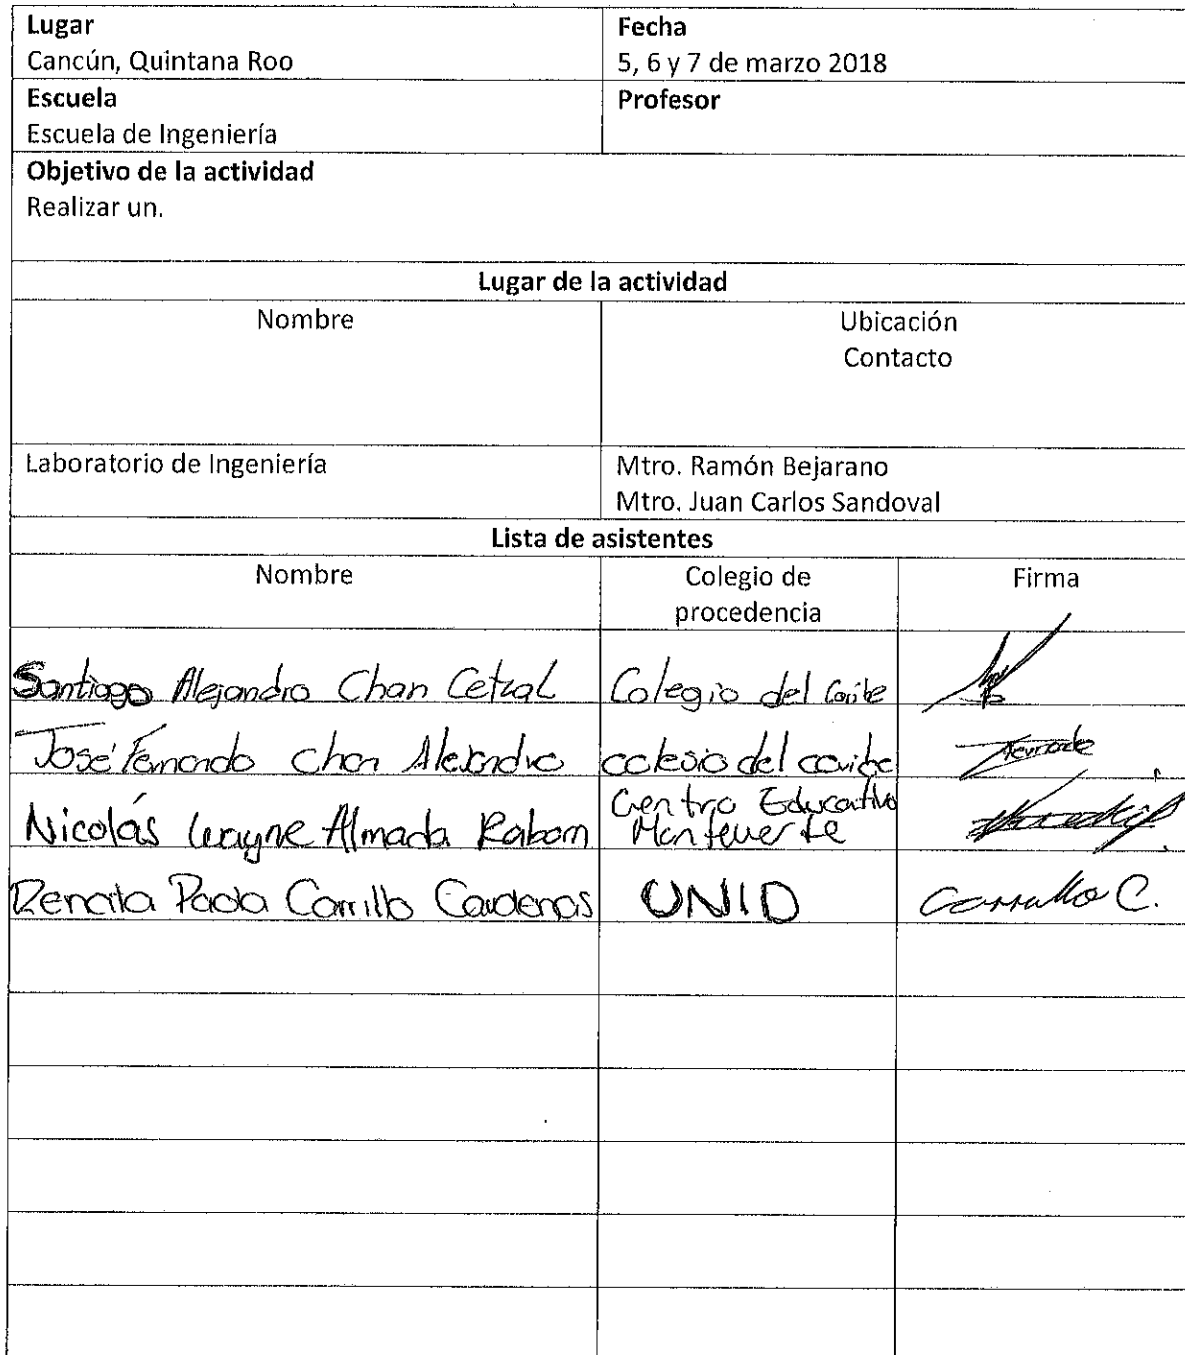 Lugar
Fecha
Cancún, Quintana Roo
5, 6 y 7 de marzo 2018
Escuela
Profesor
Escuela de Ingeniería
Objetivo de la actividad
Realizar un.
Lugar de la actividad
Nombre
Ubicación
Contacto
Laboratorio de Ingeniería
Mtro. Ramón Bejarano
Mtro. Juan Carlos Sandoval
Lista de asistentes
Nombre
Colegio de
procedencia
Firma
Santiago Alejandro Chan Cetzal
Colegio del Caribe
José Fernando Chan Alejandro
colegio del caribe
Nicolás Wayne Almada Rabom
Centro Educativo
Monteverde
Renata Paola Carrillo Cardenas
UNID
Carrillo C.